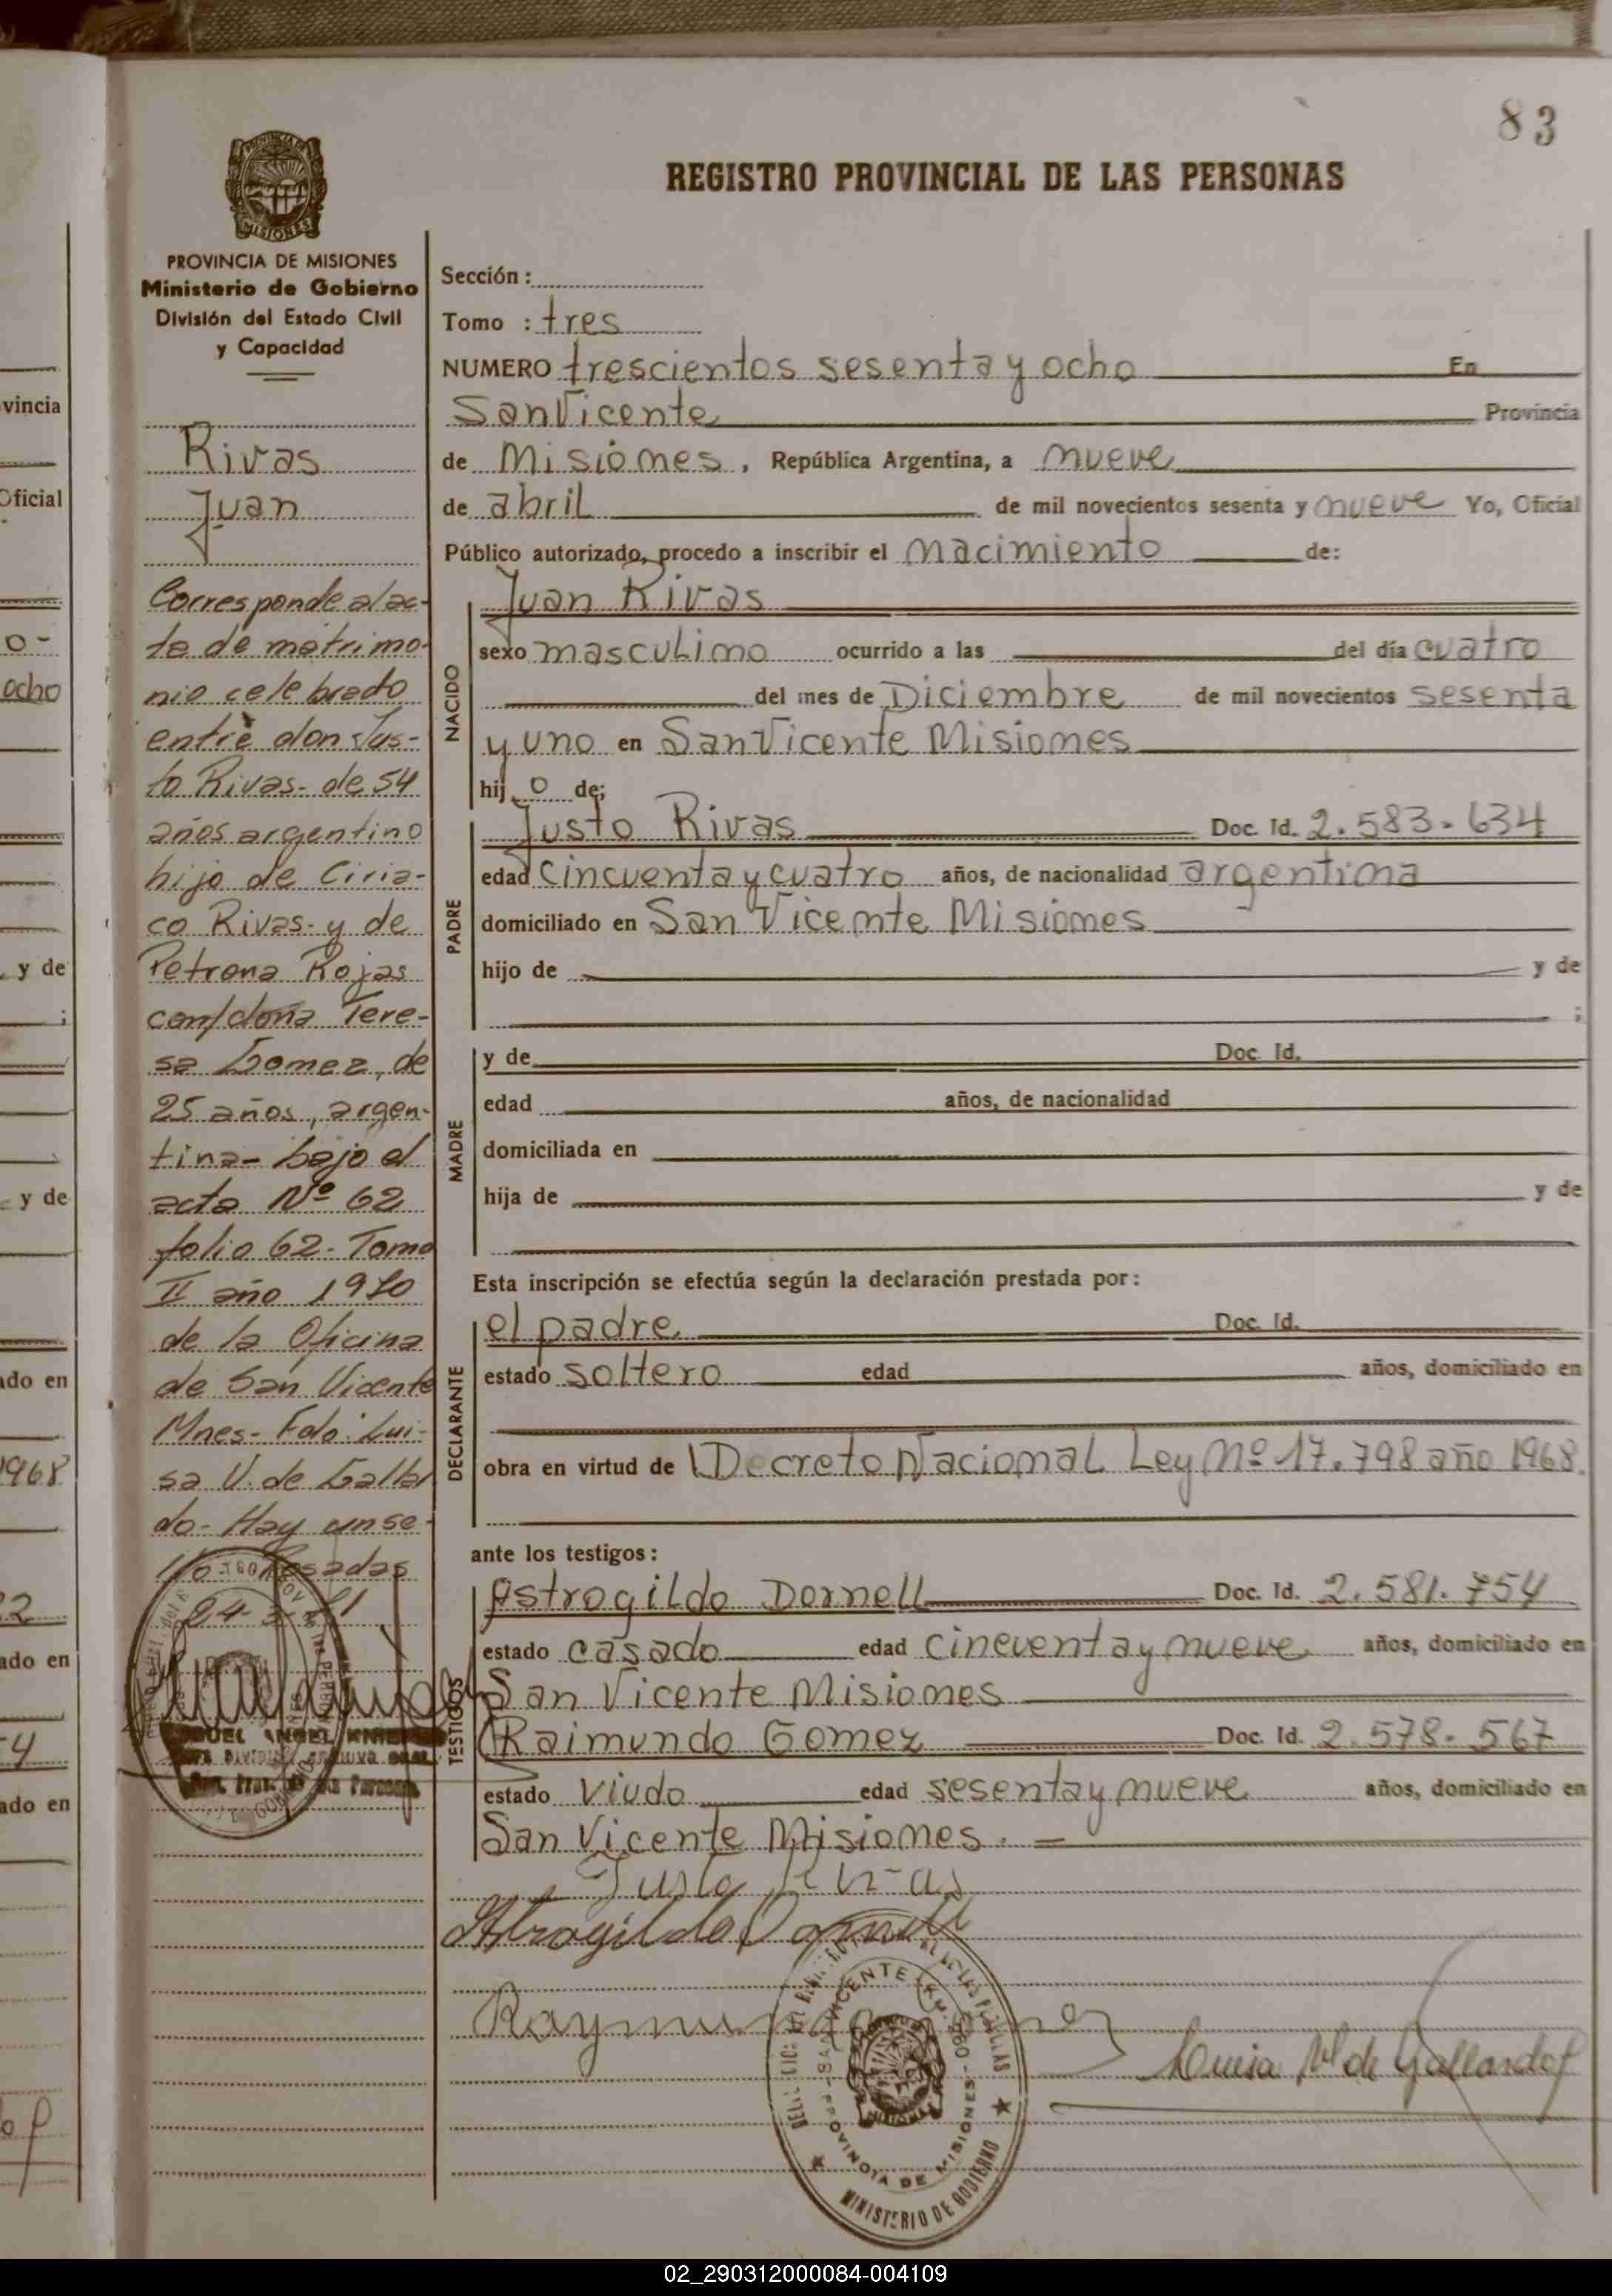 83
REGISTRO PROVINCIAL DE LAS PERSONAS
MISIONES
PROVINCIA DE MISIONES
Ministerio de Gobierno
División del Estado Civil
y Capacidad
Rivas
Juan
Corresponde al ac-
ta de matrimo-
nio celebrado
entre don Jus-
to Rivas- de 54
años argentino
hijo de Ciria-
co Rivas- y de
Petrona Rojas
con/doña Tere-
sa Gomez, de
25 años, argen-
tina- bajo el
acta Nº 62
folio 62- Tomo
II año 1970
de la Oficina
de San Vicente
Mnes- Fdo: Lui-
sa V. de Gallar
do- Hay un se-
llo- Posadas
24-3-
Sección:
Tomo : tres
NUMERO trescientos sesenta y ocho En
San Vicente Provincia
de Misiones, República Argentina, a nueve
de abril de mil novecientos sesenta y nueve Yo, Oficial
Público autorizado, procedo a inscribir el nacimiento de:
NACIDO
Juan Rivas
sexo masculino ocurrido a las del día cuatro
del mes de Diciembre de mil novecientos sesenta
y uno en San Vicente Misiones
hijo de;
PADRE
Justo Rivas Doc. Id. 2.583.634
edad cincuenta y cuatro años, de nacionalidad argentina
domiciliado en San Vicente Misiones
hijo de y de
;
MADRE
y de Doc. Id.
edad años, de nacionalidad
domiciliada en
hija de y de
Esta inscripción se efectúa según la declaración prestada por:
DECLARANTE
el padre Doc. Id.
estado soltero edad años, domiciliado en
obra en virtud de Decreto Nacional Ley Nº 17.798 año 1968.
ante los testigos:
TESTIGOS
Astrogildo Dornell Doc. Id. 2.581.754
estado casado edad cincuenta y nueve años, domiciliado en
San Vicente Misiones
Raimundo Gomez Doc. Id. 2.578.567
estado viudo edad sesenta y nueve años, domiciliado en
San Vicente Misiones. —
Justo Rivas
Astrogildo Dornell
Raymundo
Luisa V. de Gallardo
PROVINCIA DE MISIONES
MINISTERIO DE GOBIERNO
vincia
Oficial
o-
ocho
y de
;
y de
ado en
1968
ado en
4
ado en
02_290312000084-004109